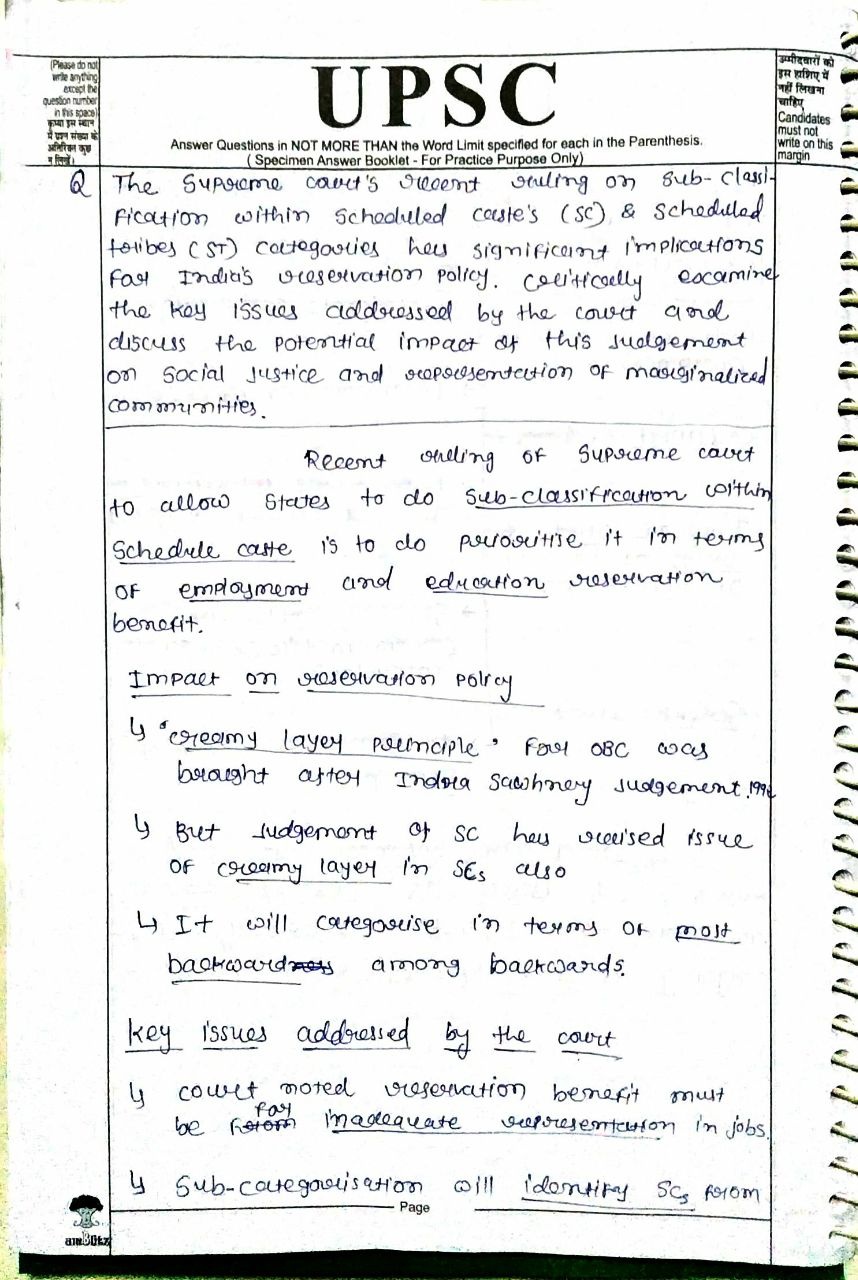 (Please do not
write anything
except the
question number
in this space)
कृपया इस स्थान
में प्रश्न संख्या के
अतिरिक्त कुछ
न लिखें।
UPSC
Answer Questions in NOT MORE THAN the Word Limit specified for each in the Parenthesis.
( Specimen Answer Booklet - For Practice Purpose Only)
उम्मीदवारों को
इस हाशिए में
नहीं लिखना
चाहिए
Candidates
must not
write on this
margin
Q The Supreme court's recent ruling on Sub-classi-
fication within scheduled caste's (SC) & Scheduled
tribes (ST) categories has significant implications
for India's reservation policy. critically examine
the key issues addressed by the court and
discuss the potential impact of this judgement
on social justice and representation of marginalized
communities.
Recent ruling of Supreme court
to allow States to do Sub-classification within
Schedule caste is to do prioritise it in terms
of employment and education reservation
benefit.
Impact on reservation policy
↳ 'creamy layer principle' for OBC was
brought after Indra Sawhney judgement
↳ But judgement of SC has raised issue
of creamy layer in SCs also
↳ It will categorise in terms of most
backwardness among backwards.
key issues addressed by the court
↳ court noted reservation benefit must
be for inadequate representation in jobs.
↳ Sub-categorisation will identify SCs from
Page